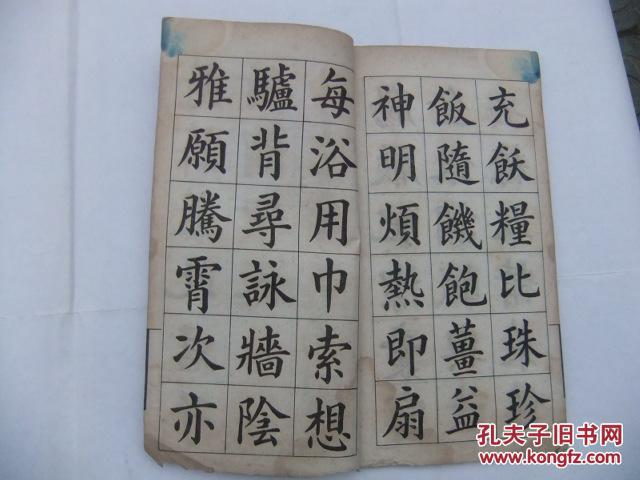 充飫糧比珠珍
飯隨饑飽薑益
神明煩熱即扇
每浴用巾索想
驢背尋詠牆陰
雅願騰霄次亦
孔夫子旧书网
KONGFZ.COM